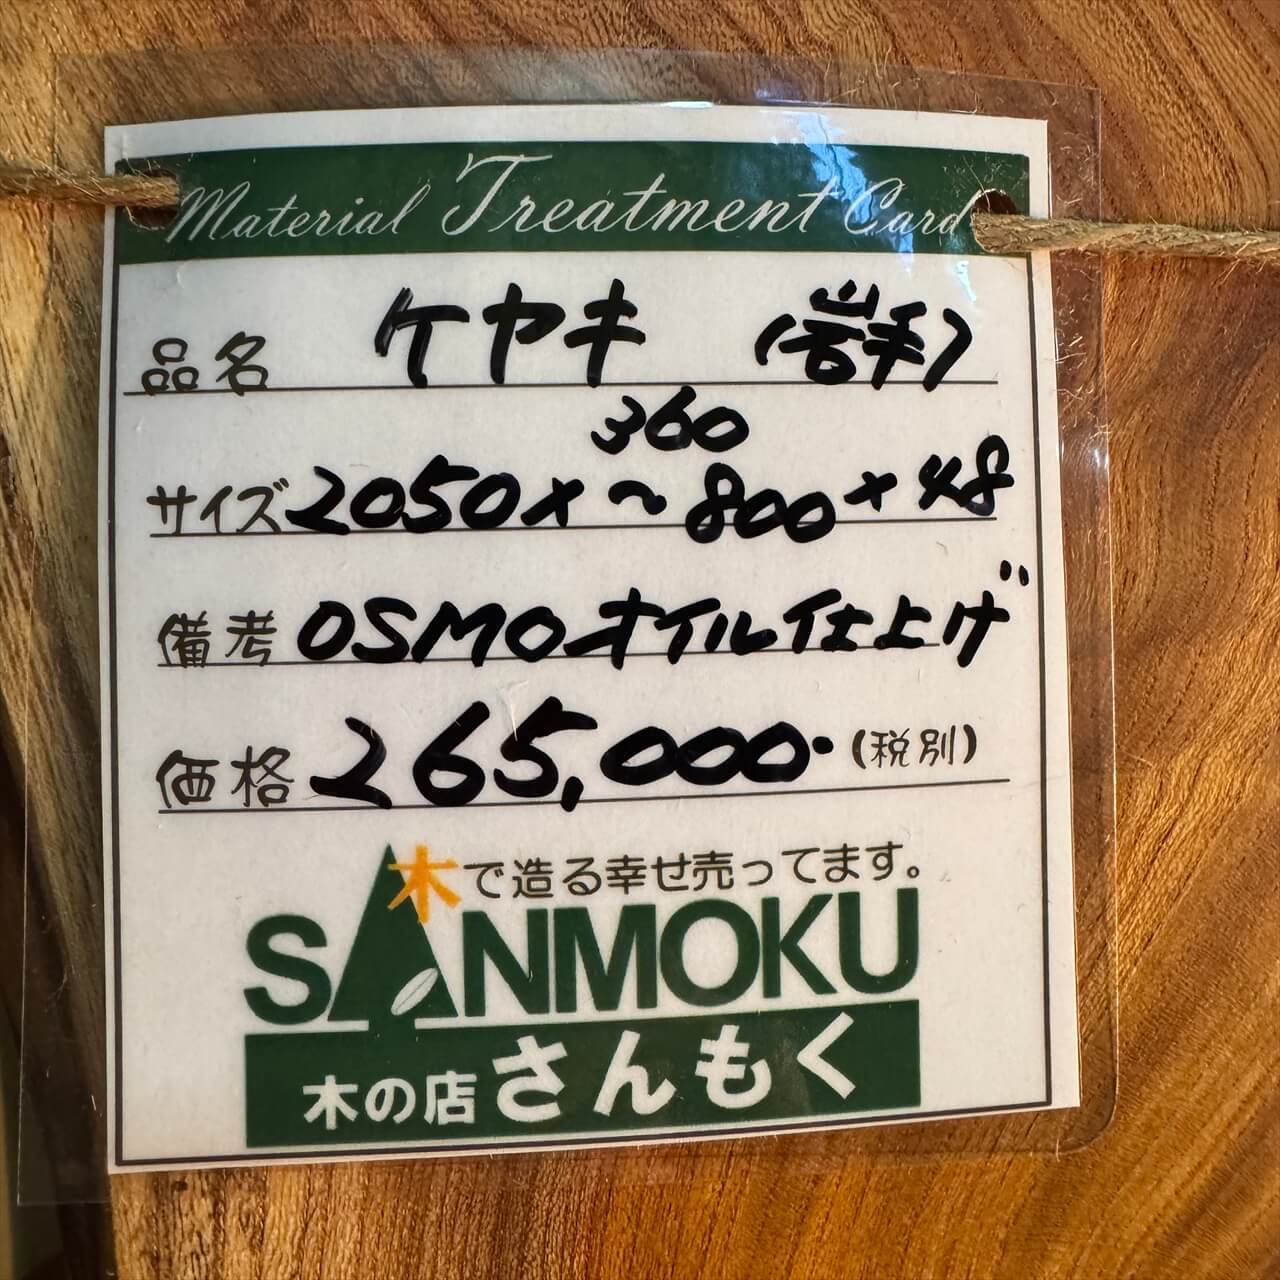 Material Treatment Card
品名 ケヤキ (岩手)
360
サイズ 2050×〜800×48
備考 OSMOオイル仕上げ
価格 265,000・(税別)
木で造る幸せ売ってます。
SANMOKU
木の店 さんもく